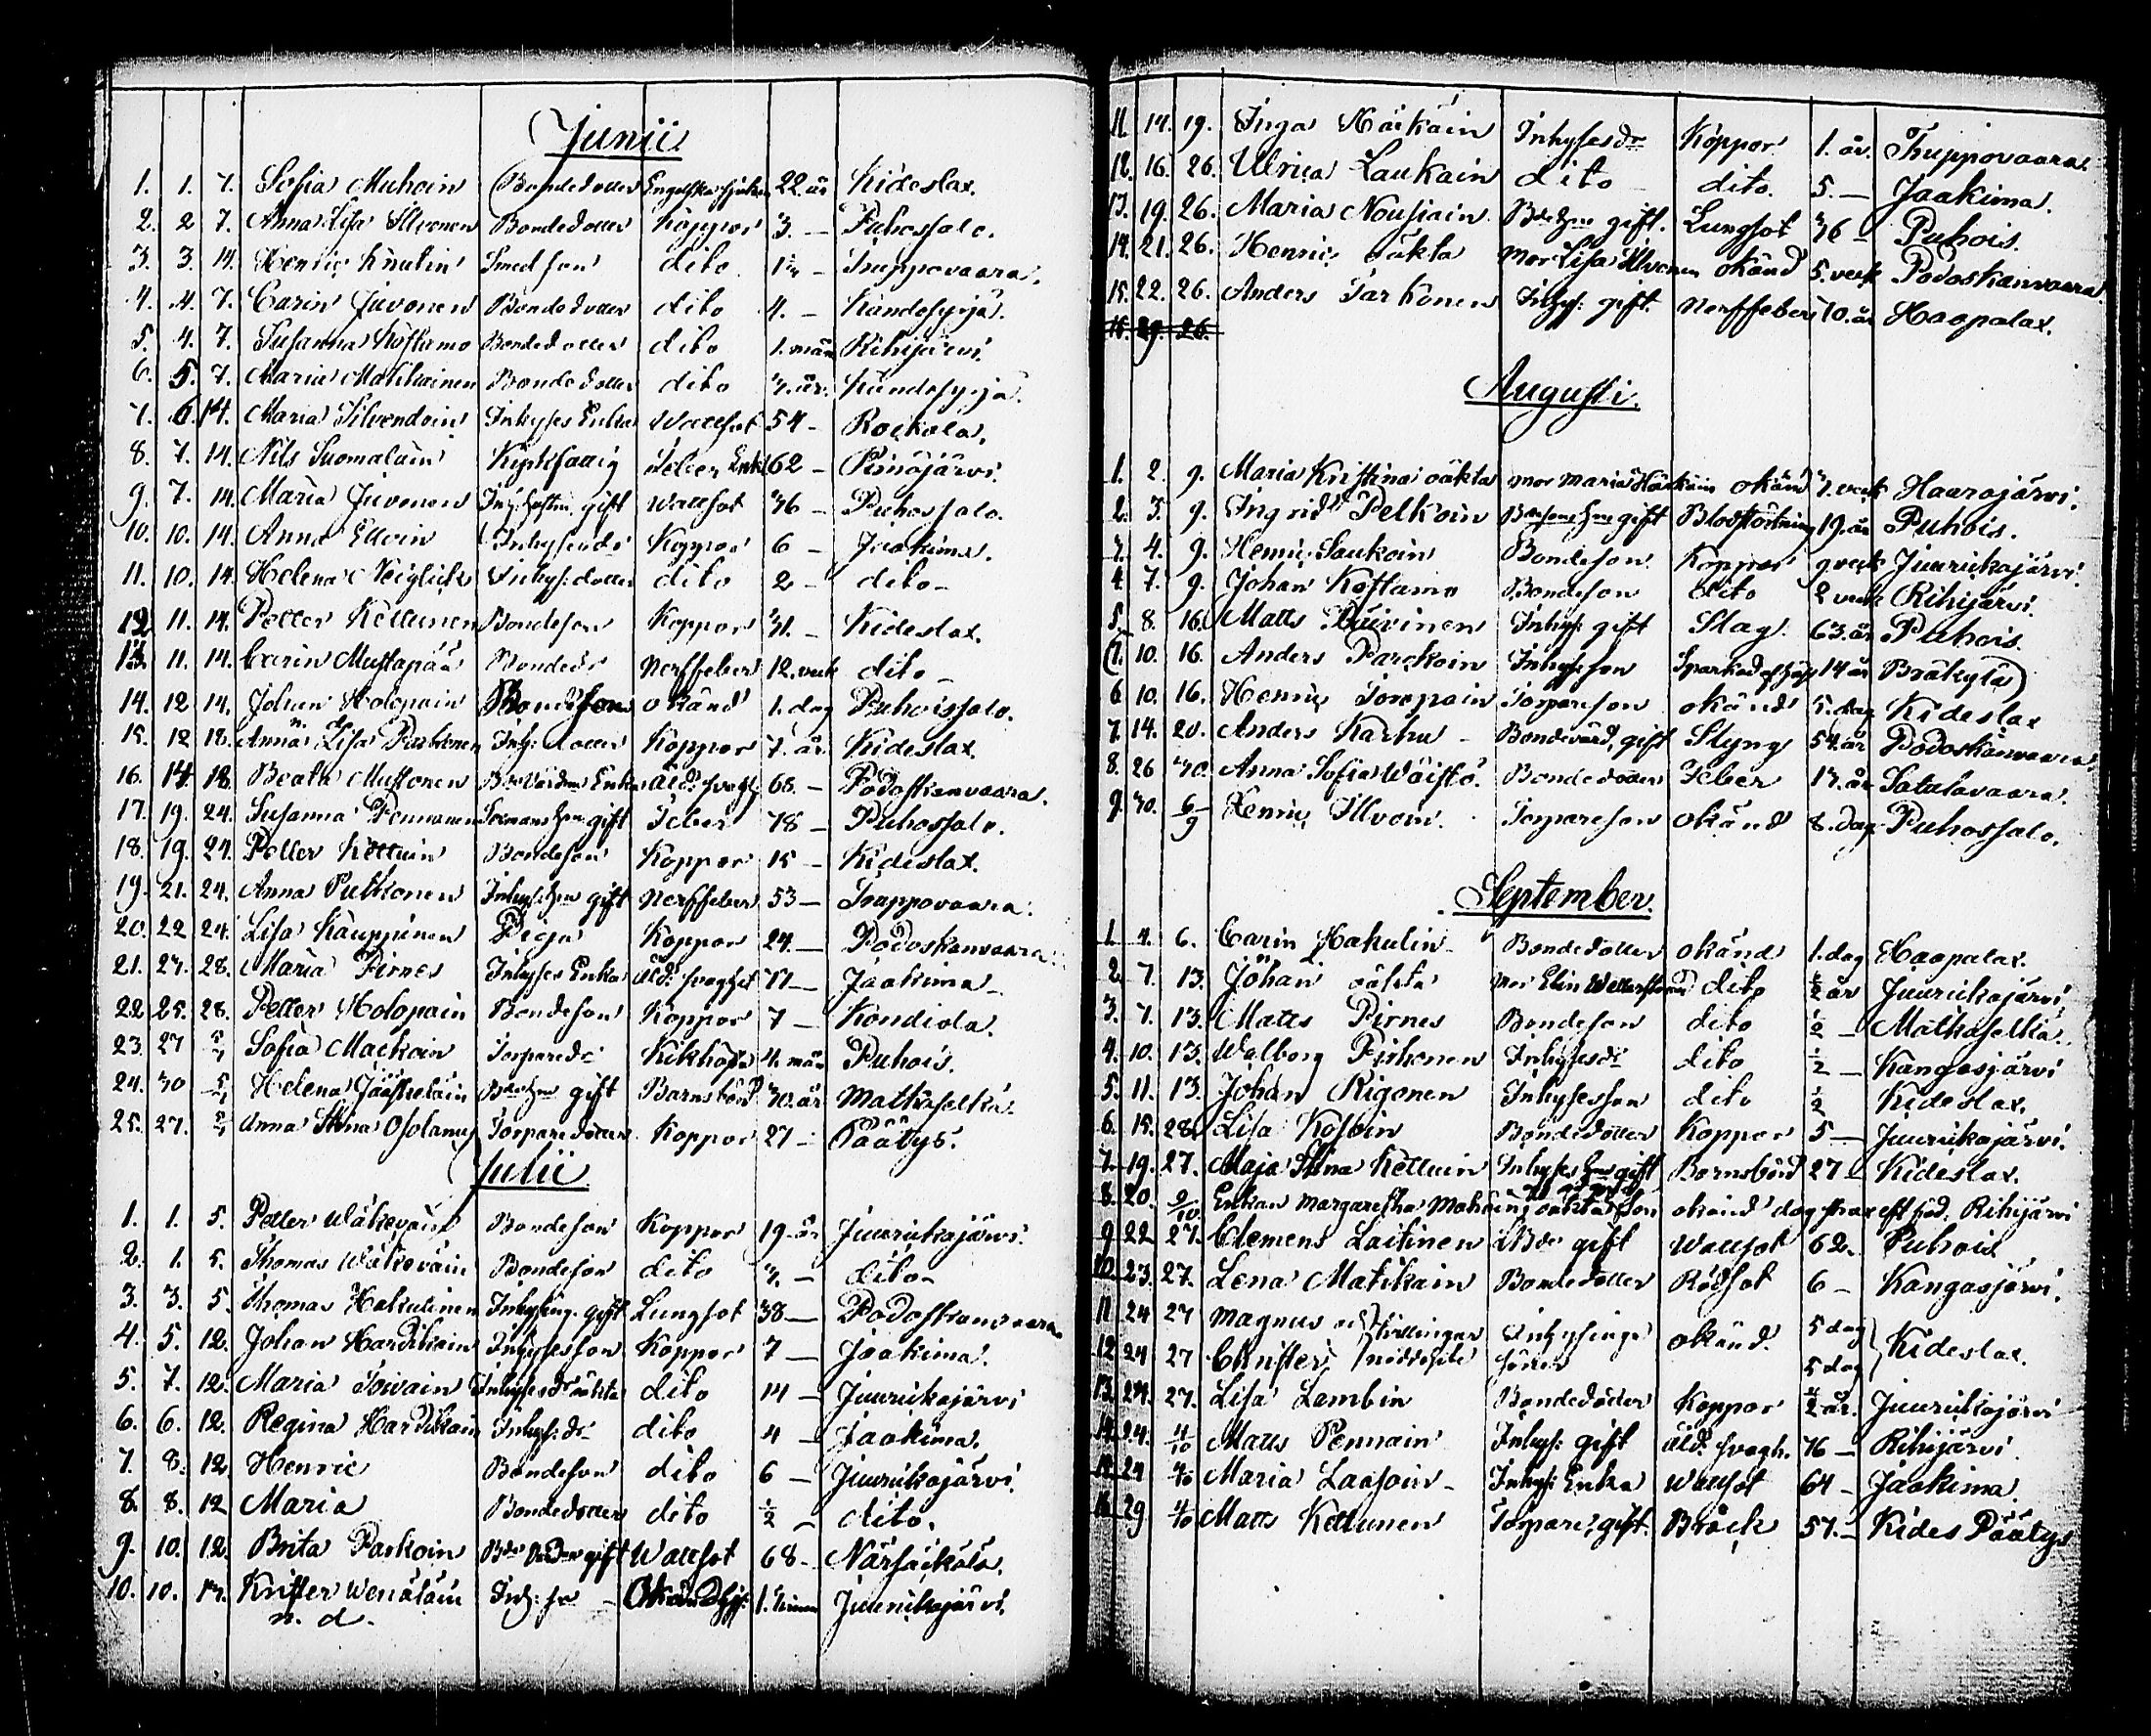 Junii
1. 1. 7. Sofia Muhoin Bondedotter Engelska sjukan 22. år Kideslax.
2. 2 7. Anna Lisa Ilvonen Bondedotter Koppor 3. — Puhossalo.
3. 3. 14. Henric Knutin Smedson dito 1½ – Truppovaara.
4. 4. 7. Carin Juvonen Bondedotter dito 4. – Kundosyrjä.
5. 4. 7. Susanna Kostamo Bondedotter dito 1. mån Rihijärvi.
6. 5. 7. Maria Mahkainen Bondedotter dito 3. år. Kundosyrjä.
7. 6. 14. Maria Silvendoin Inhyses Enka Wattsot 54 – Rockola.
8. 7. 14. Nils Suomalain Kyrkfattig Feber Enkl 62 – Piimäjärvi.
9. 7. 14. Maria Juvonen Inh: hustru, gift Wattsot 36 – Puhossalo.
10. 10. 14. Anna Ellvin Inhysesdr Koppor 6 – Jaakima.
11. 10. 14. Helena Neiglick Inhys: dotter dito 2 – dito –
12 11. 14. Petter Kettunen Bondeson Koppor 31. – Kideslax.
13. 11. 14. Carin Mustapää Bondedr Nerffeber 12. veck dito –
14. 12 14. Johan Holopain Bondeson okänd 1. dag Puhoissalo.
n. d.
15. 12 18. Anna Lisa Parkonen Inhy: dotter Koppor 7. år. Kideslax.
16. 14 18. Beata Muttonen Bde Värdin Enka Åld: svagh: 68. – Podoskanvaara.
17. 19. 24. Susanna Pennanen Sockmans Hru gift Feber 78 – Puhossalo.
18. 19. 24. Petter Kettuin Bondeson Koppor 15 – Kideslax.
19. 21. 24. Anna Pulkonen Inhyses Hru gift Nerffeber 53 – Truppovaara.
20. 22 24. Lisa Kauppinen Piga Koppor 24. — Podoskanvaara.
21. 27. 28. Maria Pirnes Inhyses Enka åld: svaghet 77 — Jaakima –
22 25. 28. Petter Holopain Bondeson Koppor 7 – Kondiola.
23. 27 5/7 Sofia Maikoin Torparedr Kikhosta 4. mån Puhois.
24. 30 5/7 Helena Jääskeläin Bde Hru gift Barnsbörd 30. år Matkaselkä.
25. 27. 5/7 Anna Stina Osolanus Torparedotter Koppor 27 – Päätys.
Julii
1. 1. 5. Petter Wäkeväin Bondeson Koppor 19. år Juurikajärvi.
2. 1. 5. Thomas Wäkeväin Bondeson dito 3. – dito –
3. 3. 5. Thomas Hakulinen Inhysing. gift Lungsot 38 — Podoskanvaara
4. 5. 12. Johan Hardikain Inhysesson Koppor 7 — Jaakima.
5. 7. 12. Maria Toivain Inhysesdr oäkta dito 14 – Juurikajärvi
6. 6. 12. Regina Hardikain Inhys: dr dito 4 – Jaakima.
7. 8. 12. Henric Bondeson dito 6 – Juurikajärvi.
8. 8. 12 Maria Bondedotter dito ½ – dito.
9. 10. 12. Brita Parkoin Bde Värdin gift Wattsot 68 – Närsäkälä.
10. 10. 17. Krister Wenäläin Inh: son – Juurikajärvi.
n. d.
11. 14. 19. Inga Näikäin Inhysesdr Koppor 1. år. Truppovaara.
12. 16. 26. Ulrica Laukain dito dito. 5. — Jaakima.
13. 19. 26. Maria Nousiain Bde Hru gift. Lungsot 36 – Puhois.
14. 21. 26. Henric oäkta mor Lisa Ilvonen okänd 5. veck Podoskanvaara.
15. 22. 26. Anders Tarkonen Inhys: gift. Nerffeber 70. år Haapalax.
15. 29. 26.
Augusti.
1. 2. 9. Maria Kristina oäkta mor Maria Härkäin okänd 3. veck Haarajärvi.
2. 3. 9. Ingrid Pelkoin Bdesons Hru gift Blodstörtning 19. år Puhois.
3. 4. 9. Henric Laukoin Bondeson Koppor 9. veck Juurikajärvi.
4. 7. 9. Johan Kostamo Bondeson dito 2 veck Rihijärvi.
5. 8. 16. Matts Päivinen Inhys: gift Slag. 63. år Puhois.
(7. 10. 16. Anders Parckoin Inhysesson Sparkad af Häst 14 år Bräkylä)
6 10. 16. Henric Torvpain Torpareson okänd 5. dag Kideslax
7. 14. 20. Anders Karhu – Bondevärd, gift Styng 54. år Podoskanvaara.
8. 26 30. Anna Sofia Wäistö. Bondedotter Feber 17. år Satulavaara.
9. 30. 6/9 Henric Ilvoin. Torpareson okänd 8. dag Puhossalo.
September.
1. 4. 6. Carin Hakulin – Bondedotter okänd 1. dag Haapalax.
2. 7. 13. Johan oäkta Mor Elin Wetterstrand dito ½ år Juurikajärvi.
3. 7. 13. Matts Pirnes Bondeson dito ½ – Matkaselkä.
4. 10. 13. Walborg Pirhonen Inhysesdr dito ½ – Kangasjärvi
5. 11. 13. Johan Rigonen Inhysesson dito ½ Kideslax.
6. 15. 28. Lisa Kosoin Bondedotter Koppor 5 — Juurikajärvi.
7. 19. 27. Maja Stina Kettuin Inhyses Hru gift Barnsbörd 27 – Kideslax.
8. 20. 9/10 Enkan Margaretha oäkta son okänd dog strax eft föd. Rihijärvi
9 22 27. Clemens Laitinen Bde gift Wattsot 62. – Puhois
10. 23. 27. Lena Matikain Bondedotter Rödsot 6 – Kangasjärvi.
11 24 27 Magnus och tvillingar Inhysings okänd. 5 dag Kideslax.
12 24 27 Christer söner 5 dag
13. 24. 27. Lisa Lambin Bondedotter Koppor ½ år. Juurikajärvi
14. 24. 4/10 Matts Pennain Inhys: gift åld. svagh. 76 – Rihijärvi.
15 24 4/10 Maria Laasoin – Inhys: Enka Wattsot 64 – Jaakima.
16. 29 4/10 Matts Kettunen Torpare, gift. Bråck 57. – Kides Päätys